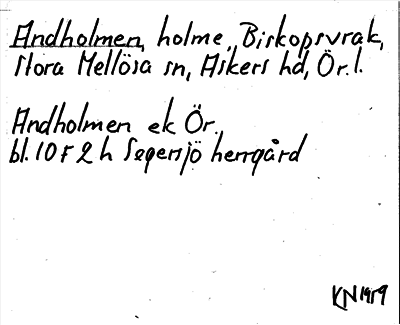 Andholmen, holme, Biskopsvrak,
Stora Mellösa sn, Askers hd, Ör. l.
Andholmen ek Ör.
bl. 10 F 2 h Segersjö herrgård
KN 1959